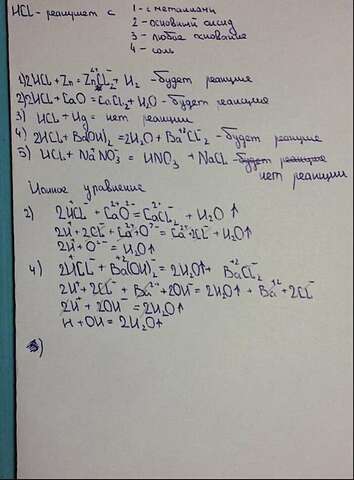 HCL - реагирует с 1 - с металлами
2 - основный оксид
3 - любое основание
4 - соль
1) 2HCl + Zn = Zn⁺²Cl₂⁻ + H₂ - будет реакция
2) 2HCl + CaO = CaCl₂ + H₂O - будет реакция
3) HCl + Hg = нет реакции
4) 2HCl + Ba(OH)₂ = 2H₂O + Ba⁺²Cl₂⁻ - будет реакция
5) HCl + Na⁺NO₃⁻ = HNO₃ + NaCl - будет реакция
нет реакции
Ионное уравнение
2) 2H⁺Cl⁻ + Ca²⁺O²⁻ = Ca²⁺Cl₂⁻ + H₂O ↑
2H⁺ + 2Cl⁻ + Ca²⁺ + O²⁻ = Ca²⁺ + 2Cl⁻ + H₂O ↑
2H⁺ + O²⁻ = H₂O ↑
4) 2H⁺Cl⁻ + Ba⁺²(OH)₂⁻ = 2H₂O↑ + Ba⁺²Cl₂⁻
2H⁺ + 2Cl⁻ + Ba⁺² + 2OH⁻ = 2H₂O↑ + Ba⁺² + 2Cl⁻
2H⁺ + 2OH⁻ = 2H₂O↑
H + OH = 2H₂O↑